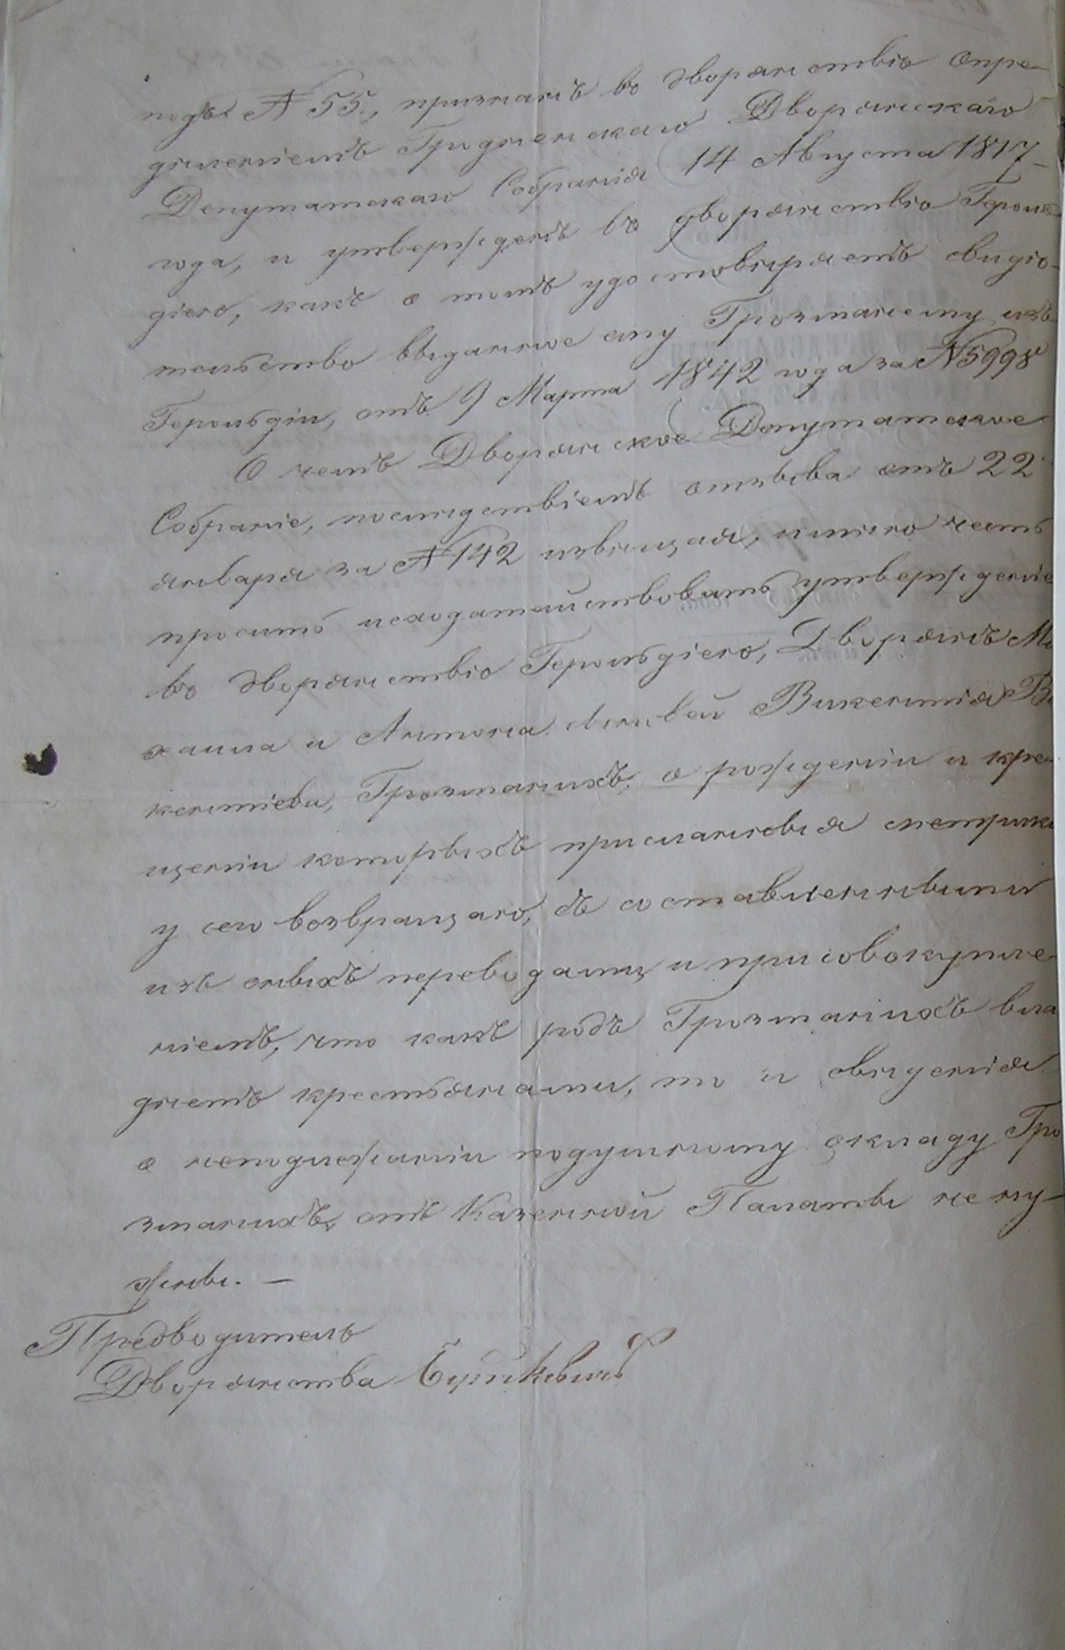 подъ № 55, признанъ въ дворянствѣ опре-
дѣленіемъ Гродненскаго Дворянскаго
Депутатскаго Собранія 14 Августа 1817
года, и утвержденъ въ дворянствѣ Героль-
діею, какъ о томъ удостовѣряетъ свидѣ-
тельство выданное ему Грозмани изъ
Герольдіи, отъ 9 Марта 1842 года за № 5998
О чемъ Дворянское Депутатское
Собраніе, послѣдствіемъ отзыва отъ 22
января за № 142 извѣщая, имѣю честь
просить исходатайствовать утвержденіе
въ дворянствѣ Герольдіею, Дворянъ Ми
хаила и Антона сыновей Викентія Ви
кентіева, Грозманихъ, о рожденіи и кре-
щеніи которыхъ присланныя метрики
у сего возвращаю, съ составленными
изъ оныхъ переводами, и присовокупле-
ніемъ, что какъ родъ Грозманихъ вла
дѣетъ крестьянами, то и свѣденія
о неподлежаніи подушному окладу Гро
зманихъ, отъ Казенной Палаты не ну-
жны. —
Предводитель
Дворянства